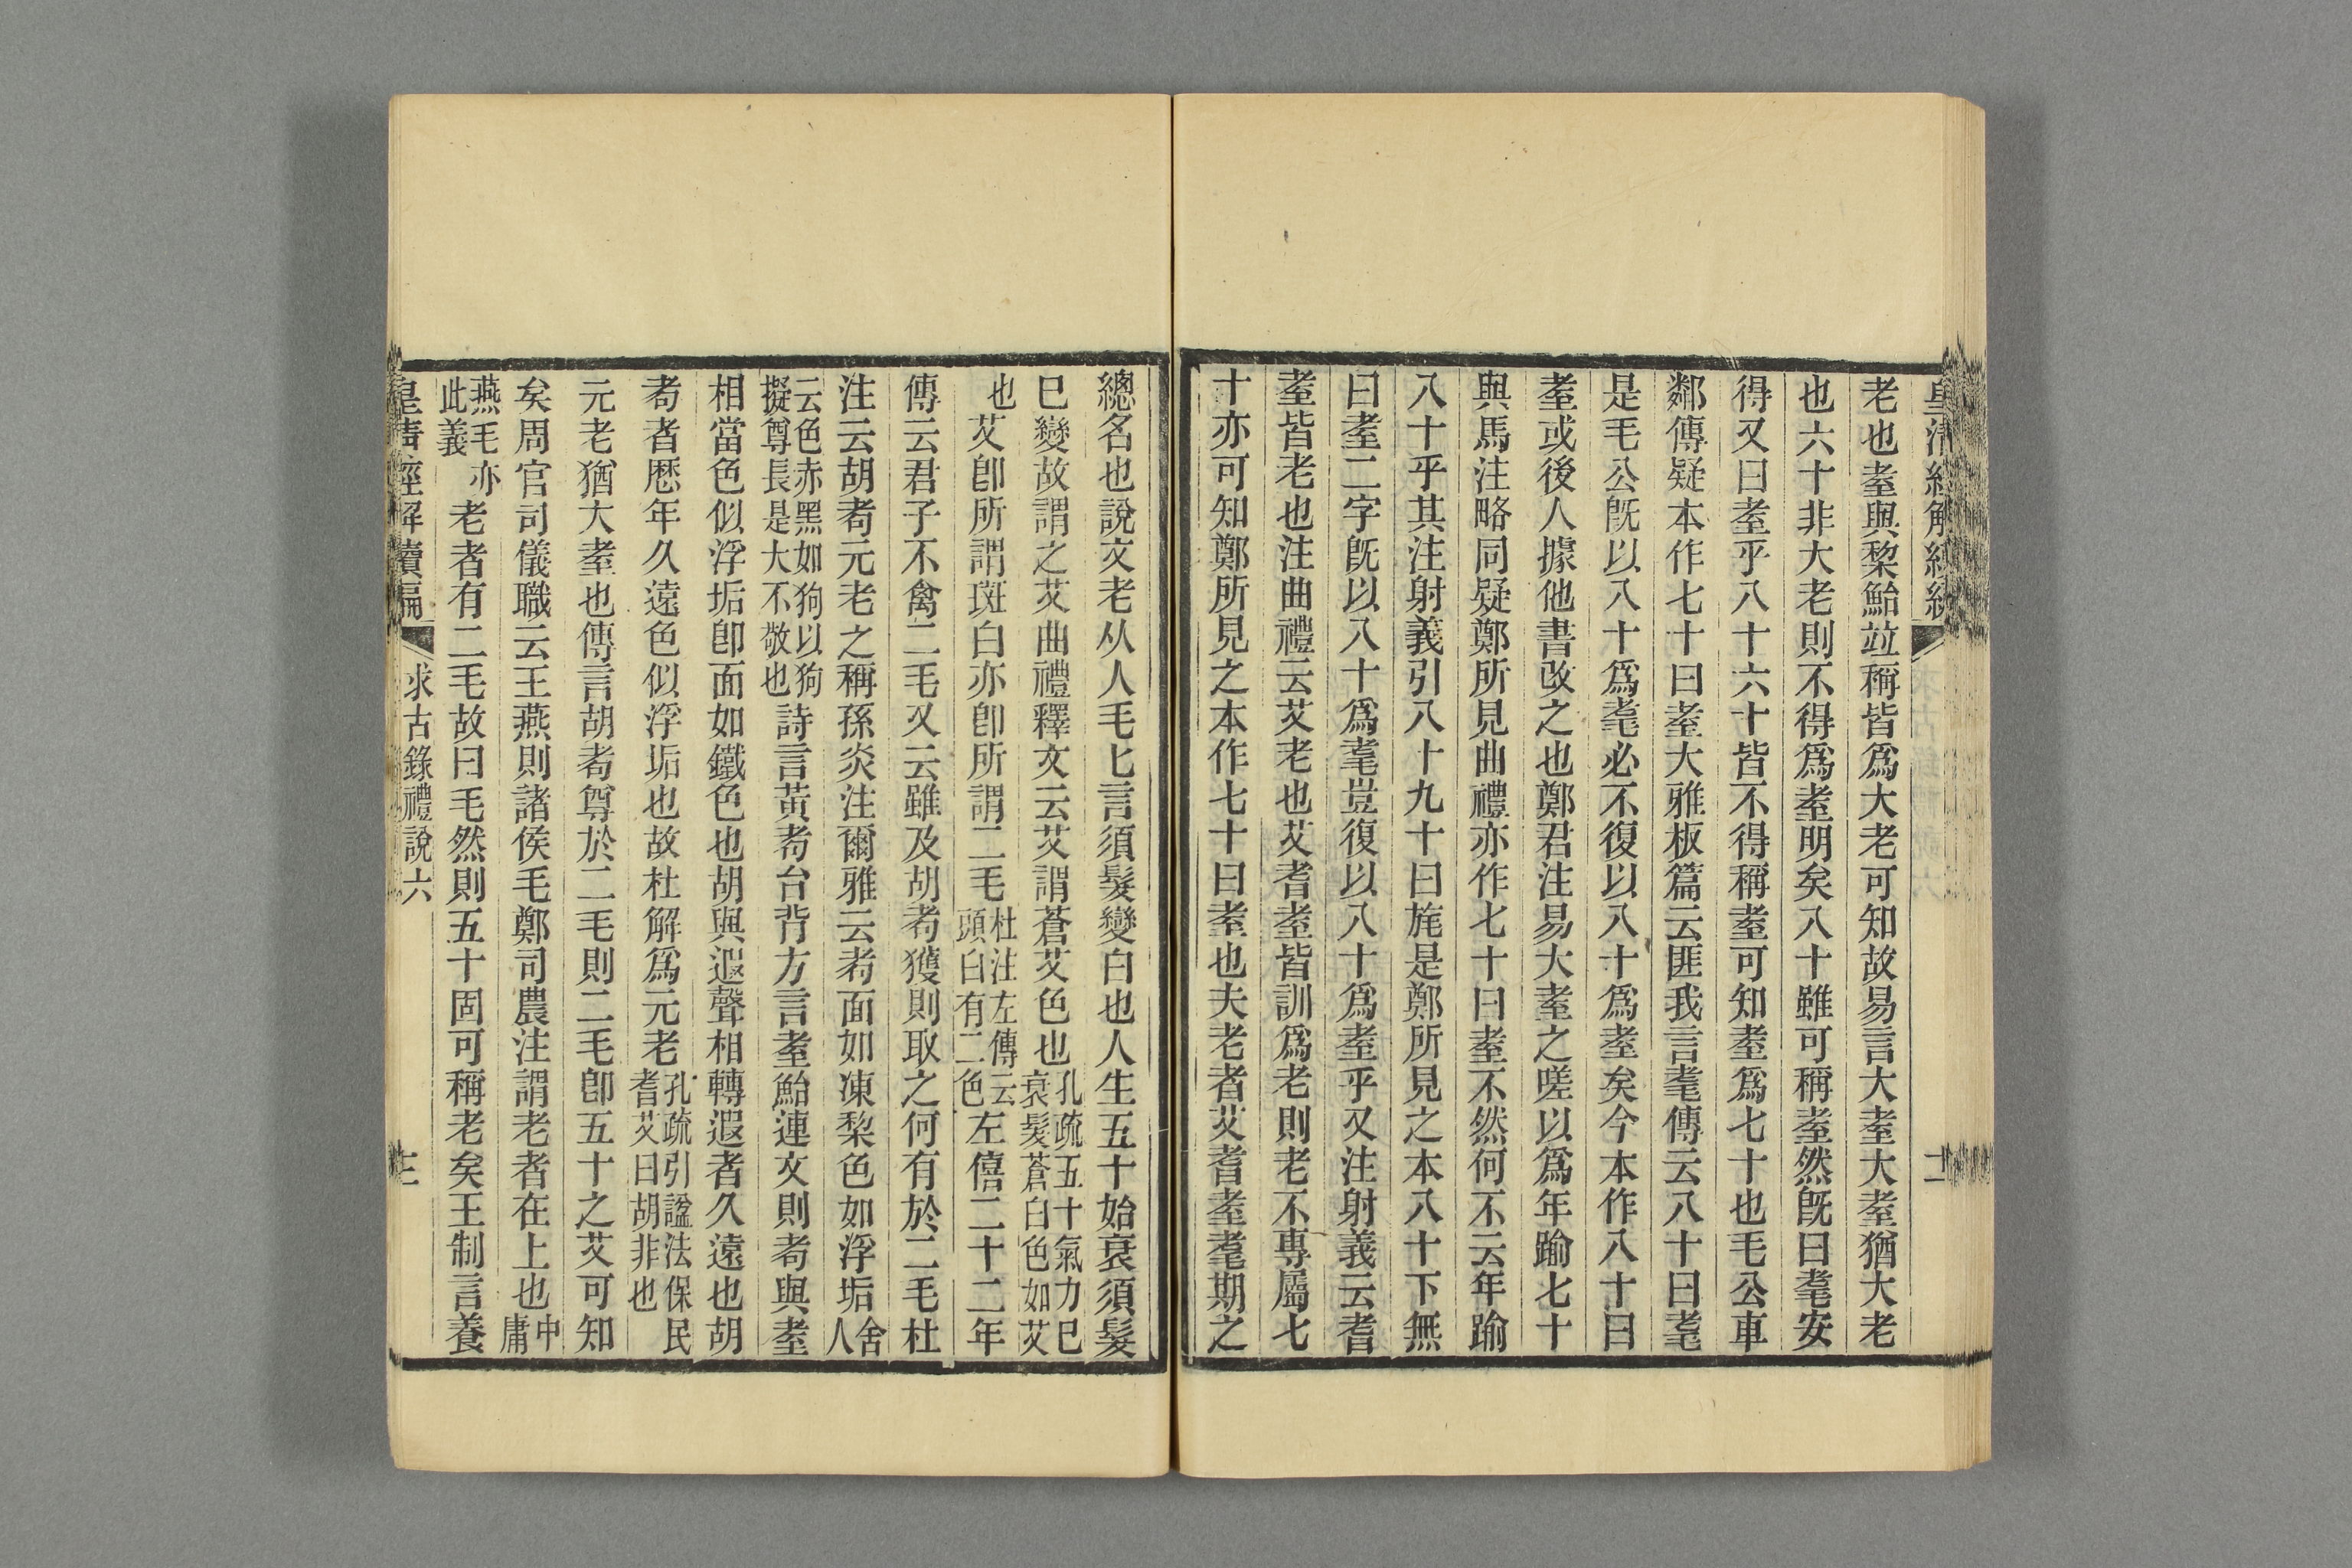 老也耋與棃鮐竝稱皆爲大老可知故易言大耋大耋猶大老
也六十非大老則不得爲耋明矣八十雖可稱耋然旣曰耄安
得又曰耋乎八十六十皆不得稱耋可知耋爲七十也毛公車
鄰傳疑本作七十曰耋大雅板篇云匪我言耄傳云八十曰耄
是毛公旣以八十爲耄必不復以八十爲耋矣今本作八十曰
耋或後人據他書改之也鄭君注易大耋之嗟以爲年踰七十
與馬注略同疑鄭所見曲禮亦作七十曰耋不然何不云年踰
八十乎其注射義引八十九十曰旄是鄭所見之本八十下無
曰耋二字旣以八十爲耄豈復以八十爲耋乎又注射義云耆
耋皆老也注曲禮云艾老也艾耆耋皆訓爲老則老不專屬七
十亦可知鄭所見之本作七十曰耋也夫老者艾耆耋耄期之
總名也說文老从人毛匕言須髮變白也人生五十始衰須髮
巳變故謂之艾曲禮釋文云艾謂蒼艾色也孔疏五十氣力巳衰髮蒼白色如艾
也艾卽所謂斑白亦卽所謂二毛杜注左傳云頭白有二色左僖二十二年
傳云君子不禽二毛又云雖及胡耇獲則取之何有於二毛杜
注云胡耇元老之稱孫炎注爾雅云耇面如凍棃色如浮垢舍人
云色赤黑如狗以狗擬尊長是大不敬也詩言黃耇台背方言耋鮐連文則耇與耋
相當色似浮垢卽面如鐵色也胡與遐聲相轉遐者久遠也胡
耇者歷年久遠色似浮垢也故杜解爲元老孔疏引謚法保民耆艾曰胡非也
元老猶大耋也傳言胡耇尊於二毛則二毛卽五十之艾可知
矣周官司儀職云王燕則諸侯毛鄭司農注謂老者在上也中庸
燕毛亦此義老者有二毛故曰毛然則五十固可稱老矣王制言養
求古錄禮說六